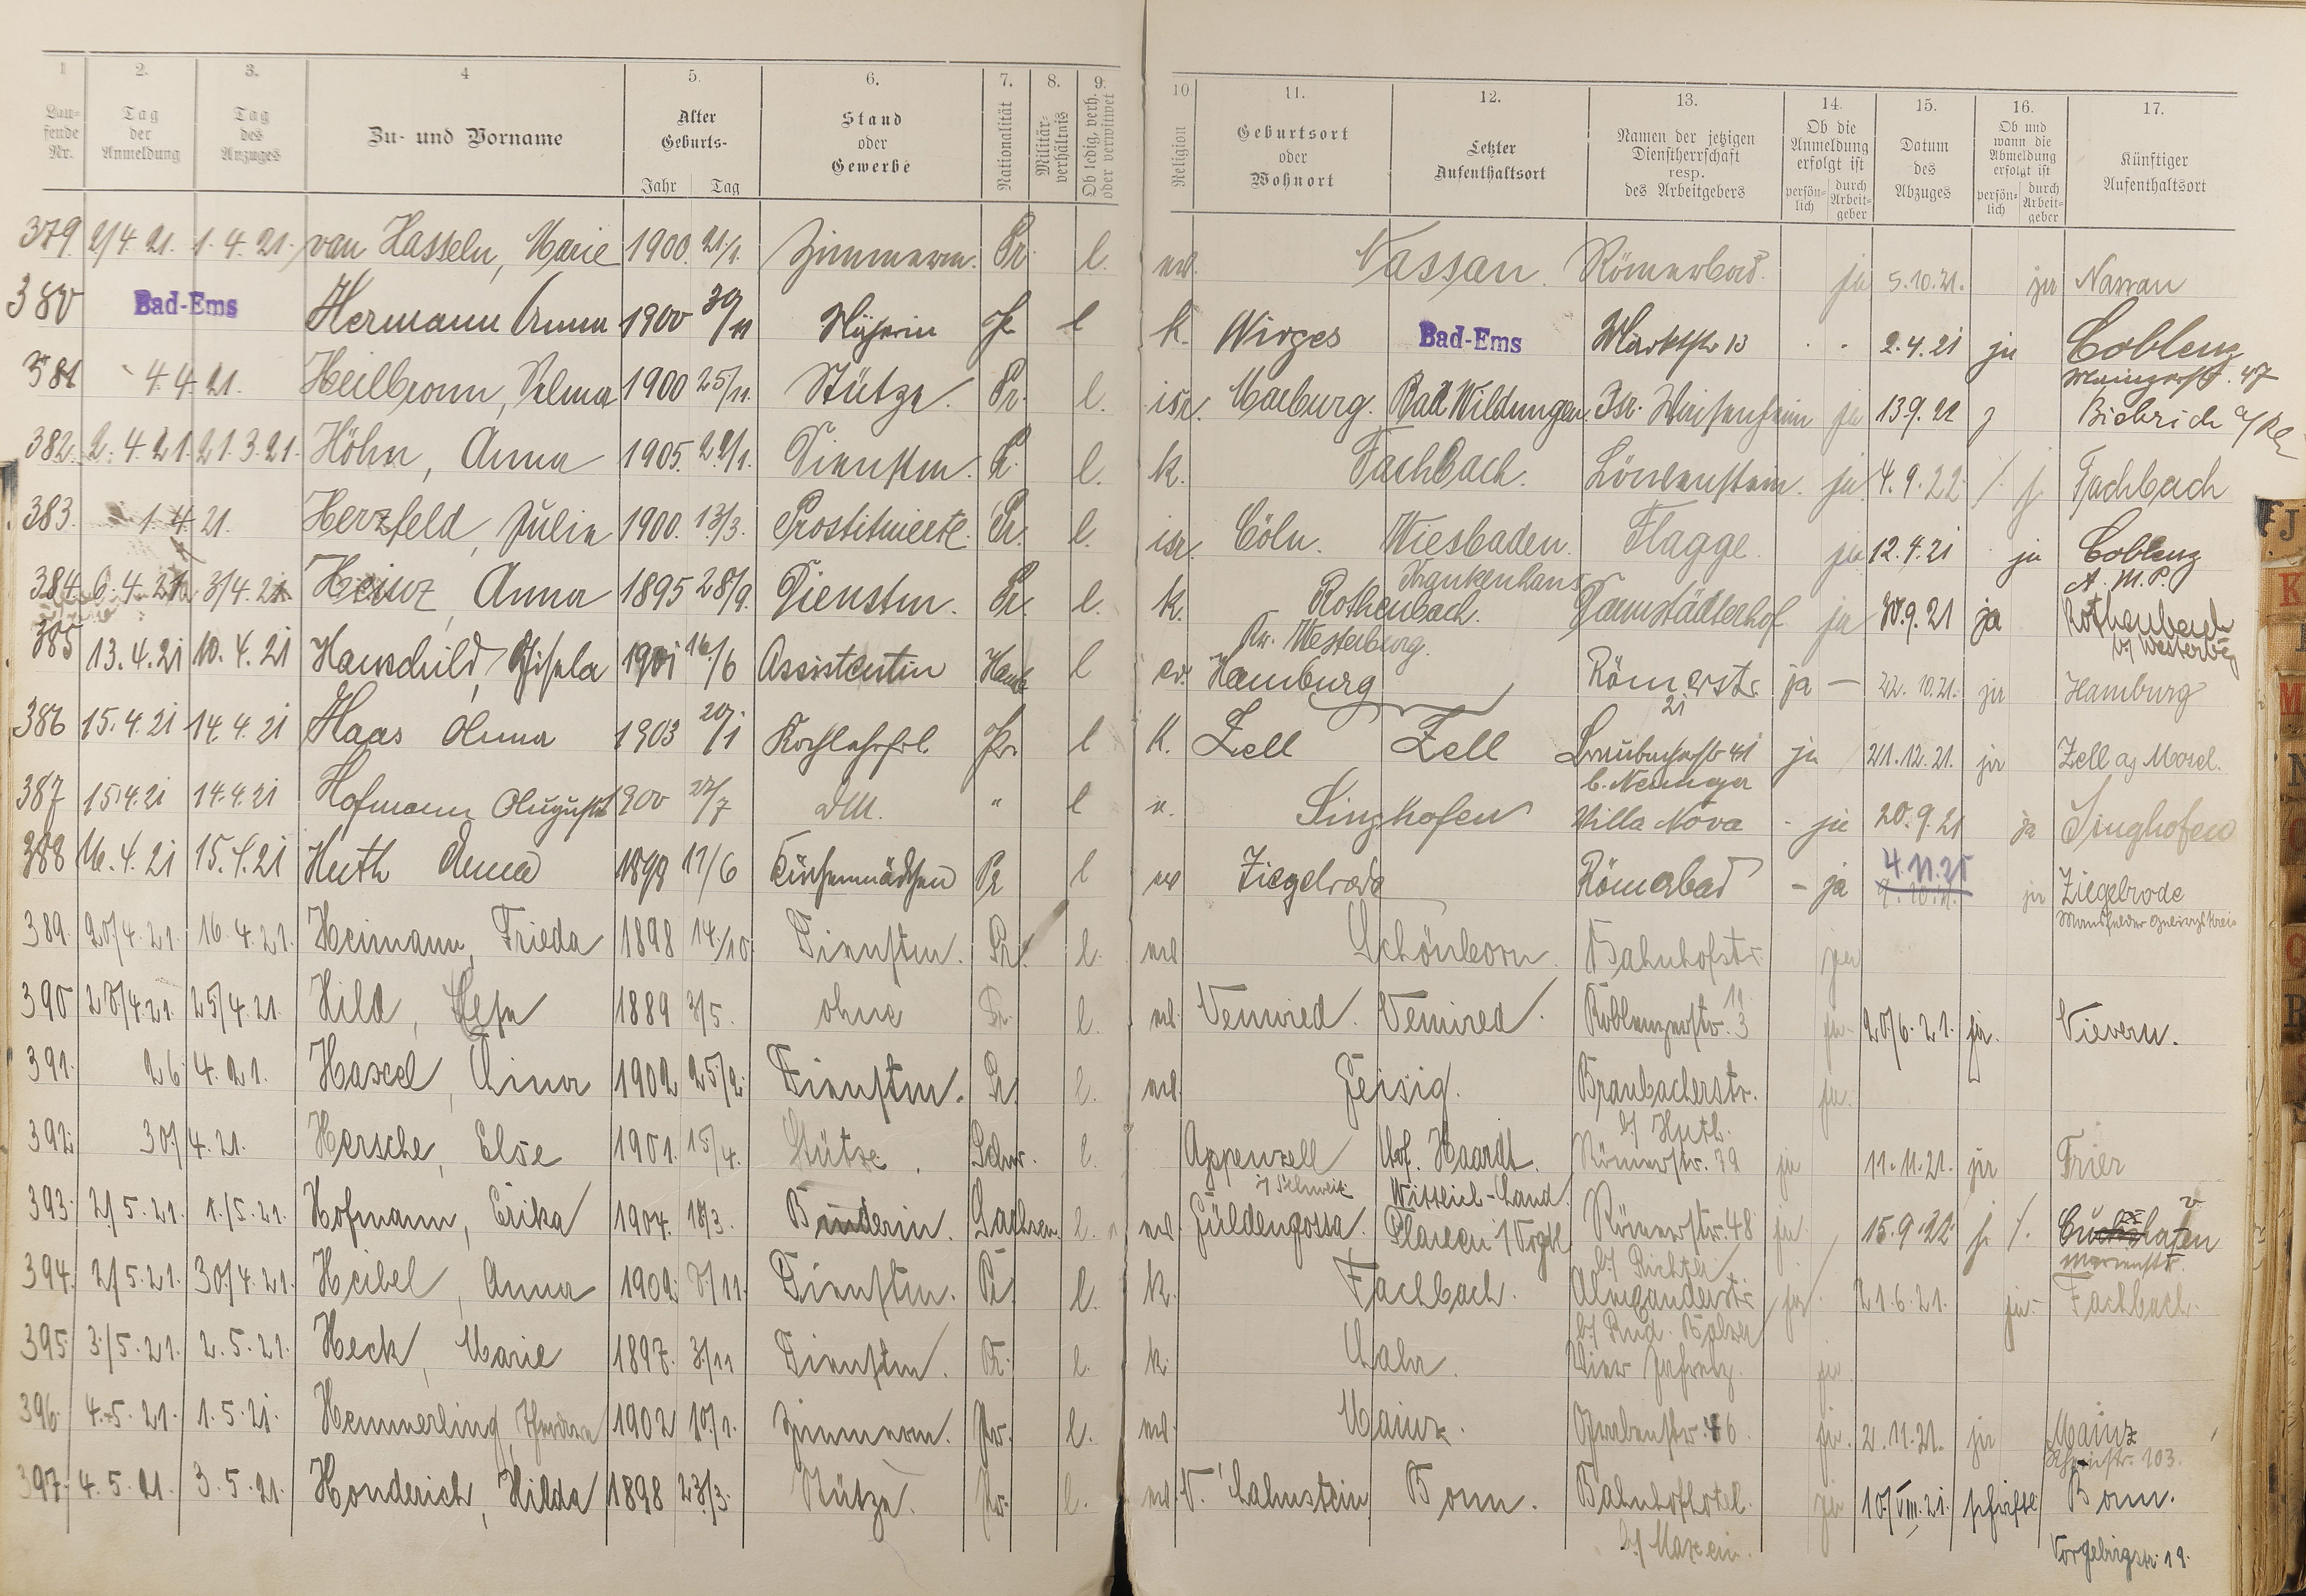 1 2. 3. 4 5. 6. 7. 8. 9. 10 11. 12. 13. 14. 15. 16. 17.
Lau-
fende
Nr.
Tag
der
Anmeldung
Tag
des
Anzuges
Zu- und Vorname
Alter
Geburts-
Jahr Tag
Stand
oder
Gewerbe
Nationalität
Militär-
verhältnis
Ob ledig, verh.
oder verwitwet
Religion
Geburtsort
oder
Wohnort
Letzter
Aufenthaltsort
Namen der jetzigen
Dienstherrschaft
resp.
des Arbeitgebers
Ob die
Anmeldung
erfolgt ist
persön-
lich
durch
Arbeit-
geber
Datum
des
Abzuges
Ob und
wann die
Abmeldung
erfolgt ist
persön-
lich
durch
Arbeit-
geber
Künftiger
Aufenthaltsort
379. 2/4. 21. 1. 4. 21. van Hasseln, Marie 1900. 21/1. Zimmerm. Pr. l. evl. Nassau. Römerbad. ja 5.10.21. ja Nassau
380 Bad-Ems Hermann Anna 1900 30/11 Näherin Pr l k. Wirges Bad-Ems Marktstr 13 2.4.21 ja Coblenz
Mainzerstr. 47
381 4.4.21. Heilbronn, Selma 1900 25/11. Stütze. Pr. l. isr. Marburg. Bad Wildungen. Isr. Waisenheim ja 13.9.21 Biebrich a/Rh
382. 2. 4. 21. 21. 3. 21. Höhn, Anna 1905. 22/1. Dienstm. Pr. l. k. Fachbach. Löwenstein. ja. 4.9.22 Fachbach
383. 1. 4. 21. Herzfeld, Julie 1900. 13/3. Prostituierte. Pr. l. isr. Cöln. Wiesbaden. Flagge. ja 12.4.21 ja Coblenz
Krankenhaus
A. M. P.
384. 6. 4. 21. 3/4. 21 Heinz, Anna 1895 28/9. Dienstm. Pr. l. k. Rothenbach. Darmstädterhof ja 30.9.21 ja Rothenbach
Kr. Westerburg.
b/ Westerbg
385 13. 4. 21 10. 4. 21 Hauschild, Gisela 1901 16/6 Assistentin Hamb l ev. Hamburg Römerstr. ja — 22.10.21. ja Hamburg
21
386 15. 4. 21 14. 4. 21 Haas Anna 1903 20/1 Kochlehrfrl. Pr. l k. Zell Zell Braubacherstr 41 ja 21.12.21. ja Zell a/ Mosel.
387 15.4.21 14.4.21 Hofmann Auguste 1900 22/7 DM. " l Singhofen Villa Nova - ja 20.9.21 ja Singhofen
388 16.4.21 15.4.21 Huth Anna 1898 17/6 Küchenmädchen Pr l ev Ziegelrode Römerbad - ja 4.11.21 ja Ziegelrode
389. 20/4.21. 16.4.21. Heimann, Frieda 1898 14/10. Dienstm. Pr. l. evl Schönborn. Bahnhofstr. ja
390 28/4.21. 25/4.21. Hild, 1889 3/5. ohne Pr. l. evl. Coblenzerstr. 3 ja. 20/6.21. ja. Nievern.
391. 26. 4. 21. Hased, Lina 1902 25/2. Dienstm. Pr. l. evl. Geisig. Braubacherstr. ja.
b/ Huth.
392 30/ 4. 21. Hersche, Else 1901. 15/4. Stütze. Schw. l. Appenzell Hof. Haardt. Römerstr. 39 ja 11.11.21. ja Trier
i/ Schweiz Wittlich-Land.
393. 2/5.21. 1./5.21. Hofmann, Erika 1904. 18/3. Binderin. Sachsen. l. evl. Güldengossa. Plauen i/Vogtl Römerstr. 48 ja 15.9.22
b/ Richter
394. 2/5.21. 30/4.21. Heibel, Anna 1902. 8/11. Dienstm. Pr. l. k. Fachbach. ja. 21.6.21. ja. Fachbach.
395. 3/5.21. 2.5.21. Heck, Marie 1897. 3/11 Dienstm. Pr. l. k. Lahr. Vier Jahresz. ja.
396. 4.5.21. 1.5.21. Hemmerling, 1902 10/1. Zimmerm. Pr. l. evl. Mainz. Grabenstr. 46 ja. 2.11.21. ja Mainz
Rheinstr. 103.
397. 4.5.21. 3.5.21. Honderich, Hilda 1898 23/3. Stütze. Pr. l. evl N. Lahnstein Bonn. Bahnhofhotel. ja 10/VIII.21. schriftl Bonn.
Vorgebirgstr. 19.